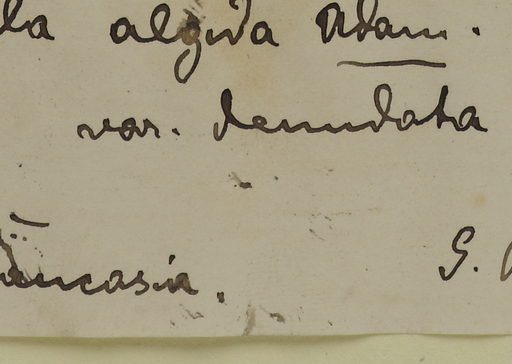 la algida Adam.
var. denudata
aucasia. G.